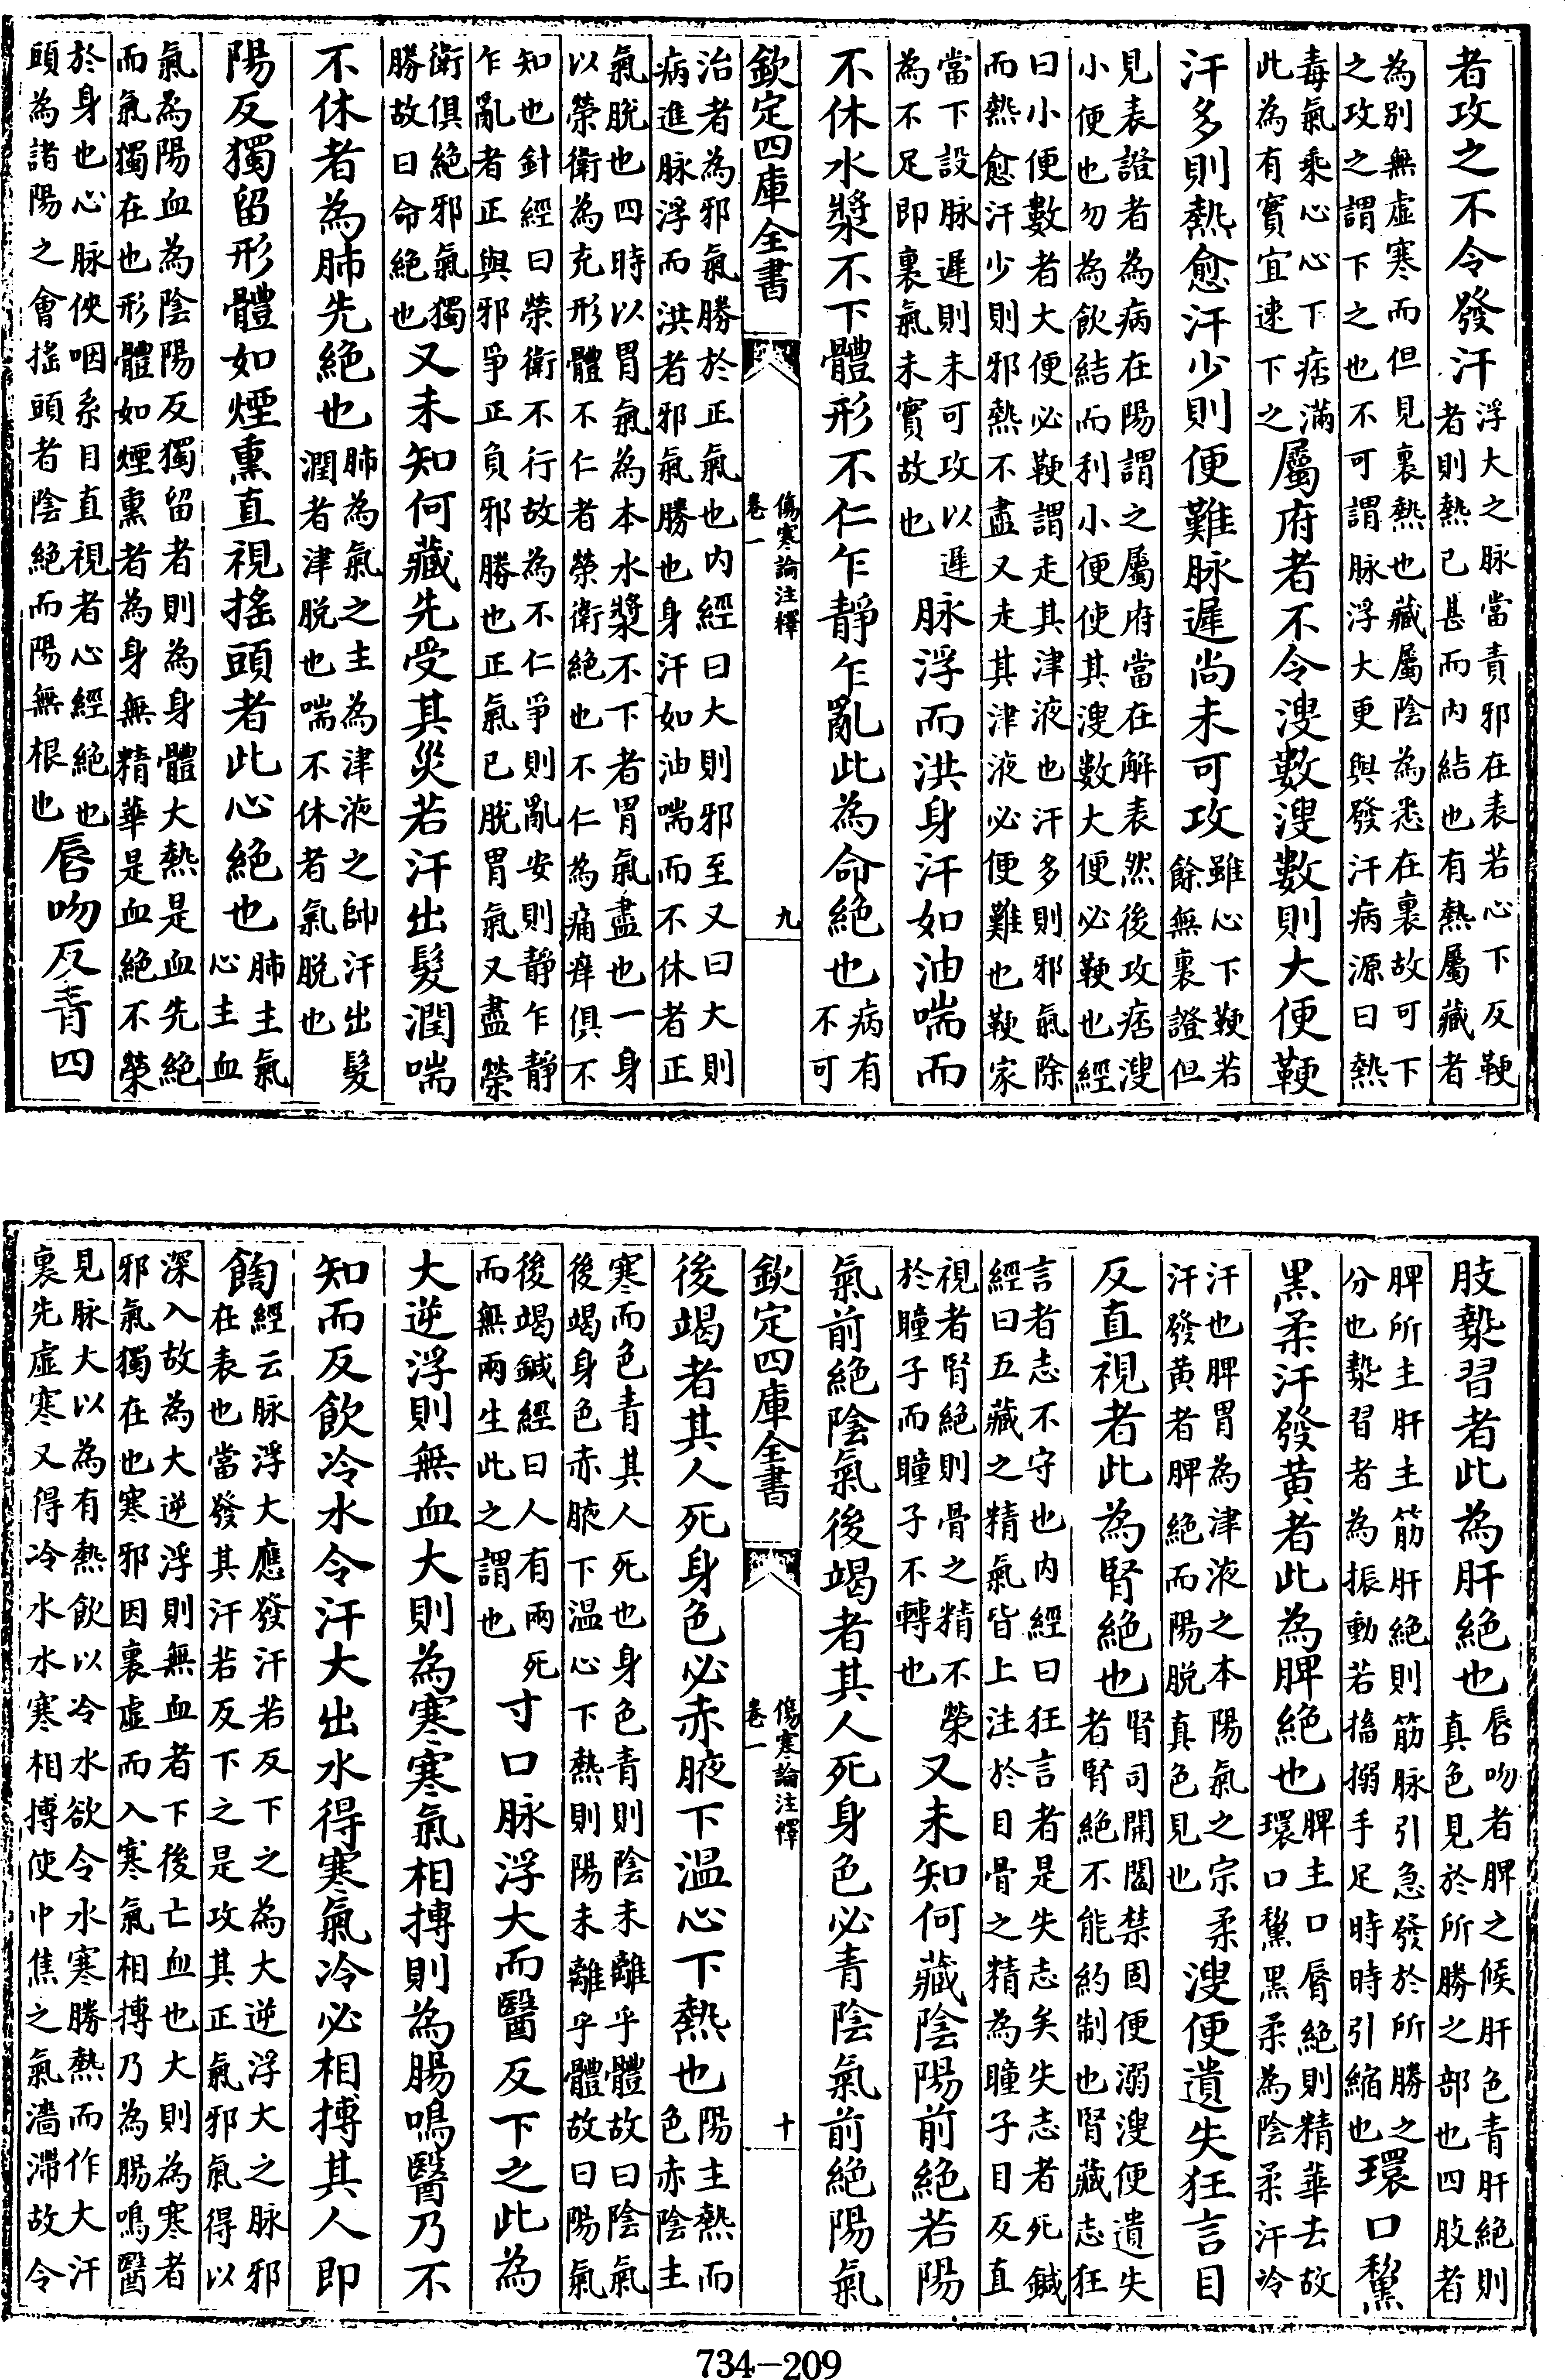 者攻之不令發汗浮大之脉當責邪在表若心下反鞕
者則熱已甚而内結也有熱屬藏者
為别無虚寒而但見裏熱也藏屬陰為悉在裏故可下
之攻之謂下之也不可謂脉浮大更與發汗病源曰熱
毒氣乘心心下痞滿
此為有實宜速下之屬府者不令溲數溲數則大便鞕
汗多則熱愈汗少則便難脉遲尚未可攻雖心下鞕若
餘無裏證但
見表證者為病在陽謂之屬府當在解表然後攻痞溲
小便也勿為飲結而利小便使其溲數大便必鞕也經
曰小便數者大便必鞕謂走其津液也汗多則邪氣除
而熱愈汗少則邪熱不盡又走其津液必便難也鞕家
當下設脉遲則未可攻以遲
為不足即裏氣未實故也脉浮而洪身汗如油喘而
不休水漿不下體形不仁乍靜乍亂此為命絶也病有
不可
欽定四庫全書
傷寒論注釋
卷一
九
治者為邪氣勝於正氣也内經曰大則邪至又曰大則
病進脉浮而洪者邪氣勝也身汗如油喘而不休者正
氣脱也四時以胃氣為本水漿不下者胃氣盡也一身
以榮衛為充形體不仁者榮衛絶也不仁為痛痒俱不
知也針經曰榮衛不行故為不仁爭則亂安則靜乍靜
乍亂者正與邪爭正負邪勝也正氣已脱胃氣又盡榮
衛俱絶邪氣獨
勝故曰命絶也又未知何藏先受其災若汗出髮潤喘
不休者為肺先絶也肺為氣之主為津液之帥汗出髮
潤者津脱也喘不休者氣脱也
陽反獨留形體如煙熏直視搖頭者此心絶也肺主氣
心主血
氣為陽血為陰陽反獨留者則為身體大熱是血先絶
而氣獨在也形體如煙熏者為身無精華是血絶不榮
於身也心脉俠咽系目直視者心經絶也
頭為諸陽之會搖頭者陰絶而陽無根也唇吻反青四
肢漐習者此為肝絶也唇吻者脾之候肝色青肝絶則
真色見於所勝之部也四肢者
脾所主肝主筋肝絶則筋脉引急發於所勝之
分也漐習者為振動若搐搦手足時時引縮也環口黧
黑柔汗發黄者此為脾絶也脾主口唇絶則精華去故
環口黧黑柔為陰柔汗冷
汗也脾胃為津液之本陽氣之宗柔
汗發黄者脾絶而陽脱真色見也溲便遺失狂言目
反直視者此為腎絶也腎司開闔禁固便溺溲便遺失
者腎絶不能約制也腎藏志狂
言者志不守也内經曰狂言者是失志矣失志者死鍼
經曰五藏之精氣皆上注於目骨之精為瞳子目反直
視者腎絶則骨之精不榮
於瞳子而瞳子不轉也又未知何藏陰陽前絶若陽
氣前絶陰氣後竭者其人死身色必青陰氣前絶陽氣
欽定四庫全書
傷寒論注釋
卷一
十
後竭者其人死身色必赤腋下温心下熱也陽主熱而
色赤陰主
寒而色青其人死也身色青則陰未離乎體故曰陰氣
後竭身色赤腋下温心下熱則陽未離乎體故曰陽氣
後竭鍼經曰人有兩死
而無兩生此之謂也寸口脉浮大而醫反下之此為
大逆浮則無血大則為寒寒氣相搏則為腸鳴醫乃不
知而反飲冷水令汗大出水得寒氣冷必相搏其人即
䭇經云脉浮大應發汗若反下之為大逆浮大之脉邪
在表也當發其汗若反下之是攻其正氣邪氣得以
深入故為大逆浮則無血者下後亡血也大則為寒者
邪氣獨在也寒邪因裏虛而入寒氣相搏乃為腸鳴醫
見脉大以為有熱飲以冷水欲令水寒勝熱而作大汗
裏先虛寒又得冷水水寒相搏使中焦之氣濇滯故令
734-209